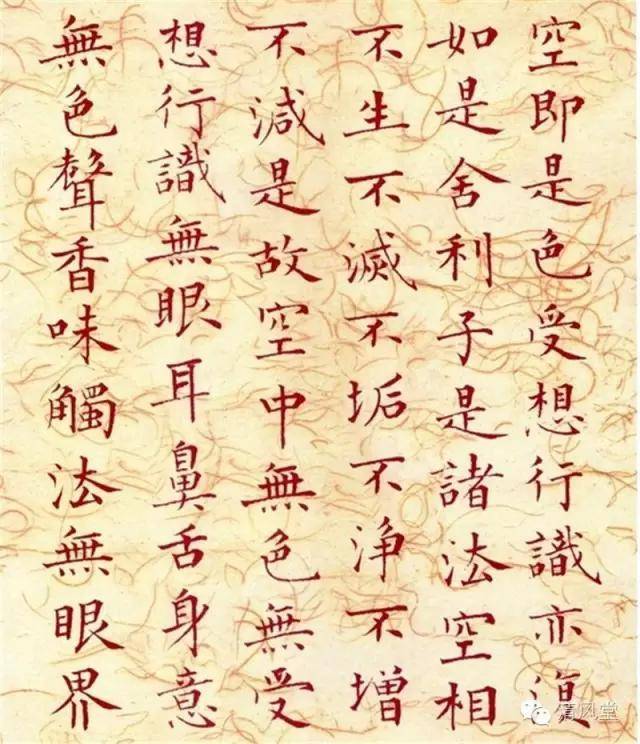 空即是色受想行識亦復
如是舍利子是諸法空相
不生不滅不垢不淨不增
不減是故空中無色無受
想行識無眼耳鼻舌身意
無色聲香味觸法無眼界
清风堂